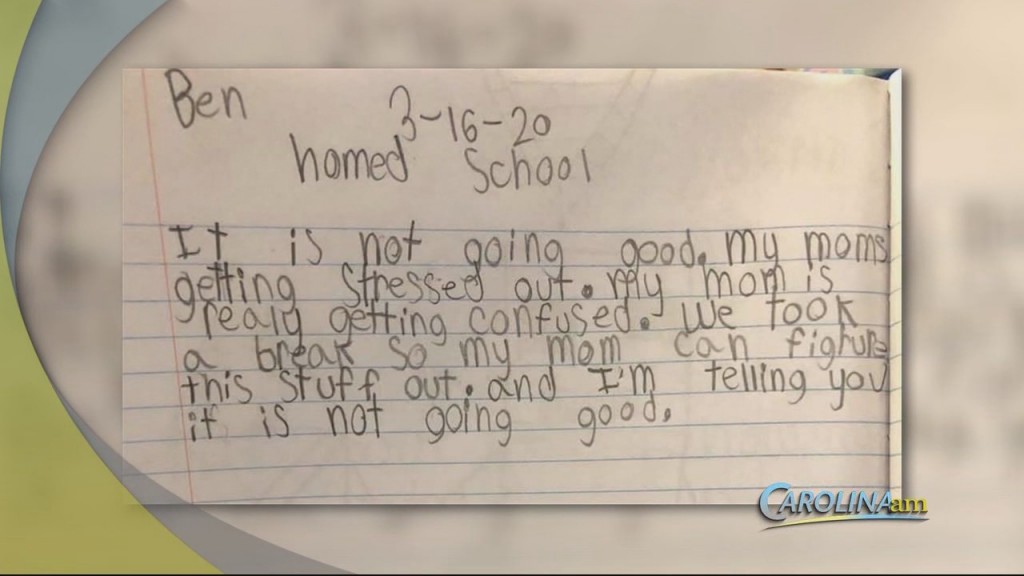 Ben
3-16-20
homed School
It is not going good. my moms
getting stressed out. my mom is
realy getting confused. we took
a break so my mom can fighure
this stuff out. and I'm telling you
it is not going good.
CAROLINAam